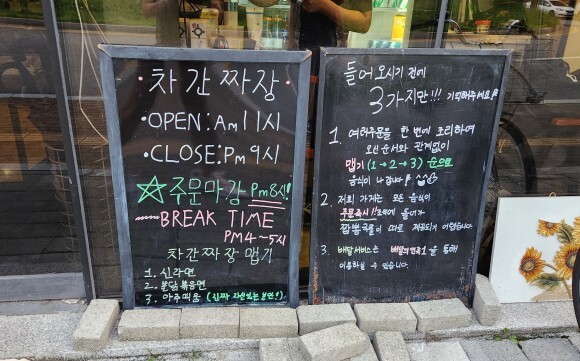 차간짜장
• OPEN: Am 11시
• CLOSE: Pm 9시
☆주문마감 Pm8시!
BREAK TIME
PM 4~5시
차간짜장 맵기
1. 신라면
2. 불닭볶음면
3. 아주매움 (진짜 자신있는분만!)
들어오시기 전에
3가지만!!! 기억해주세요!
1. 여러주문을 한 번에 조리하여
오신 순서와 관계없이
맵기 (1→2→3) 순으로
음식이 나갑니다!
2. 저희 가게는 모든 음식이
주문즉시!! 조리에 들어가
짬뽕국물이 따로 제공되기 어렵습니다.
3. 배달서비스는 배달의민족1을 통해
이용하실 수 있습니다.